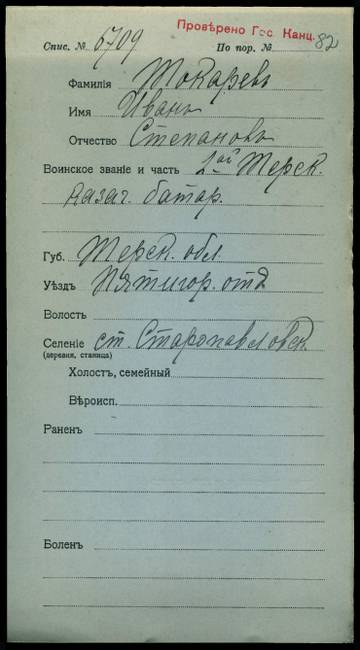 Провѣрено Гос. Канц.
Спис. № 6709 По пор. № 82
Фамилія Токаревъ
Имя Иванъ
Отчество Степановъ
Воинское званіе и часть 1ой Терск.
казач. батар.
Губ. Терск. обл.
Уѣздъ Пятигор. отд
Волость
Селеніе ст. Старопавловск.
(деревня, станица)
Холостъ, семейный
Вѣроисп.
Раненъ
Боленъ